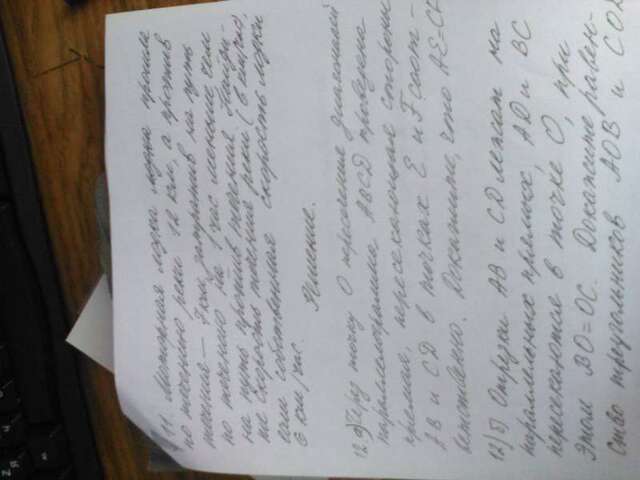 11. Моторная лодка лодка прошла
по течению реки 12 км, а против
течения — 4 км, затратив на путь
по течению на 1 час меньше чем
на путь против течения. Найди-
те скорость течения реки (в км/час),
если собственная скорость лодки
6 км/час.
Решение.
12 а) Через точку O пересечения диагоналей
параллелограмма ABCD проведена
прямая, пересекающая стороны
AB и CD в точках E и F соот-
ветственно. Докажите, что AE=CF
12) б) Отрезки AB и CD лежат на
параллельных прямых AD и BC
пересекаются в точке O, при
этом BO=OC. Докажите равен-
ство треугольников AOB и COD